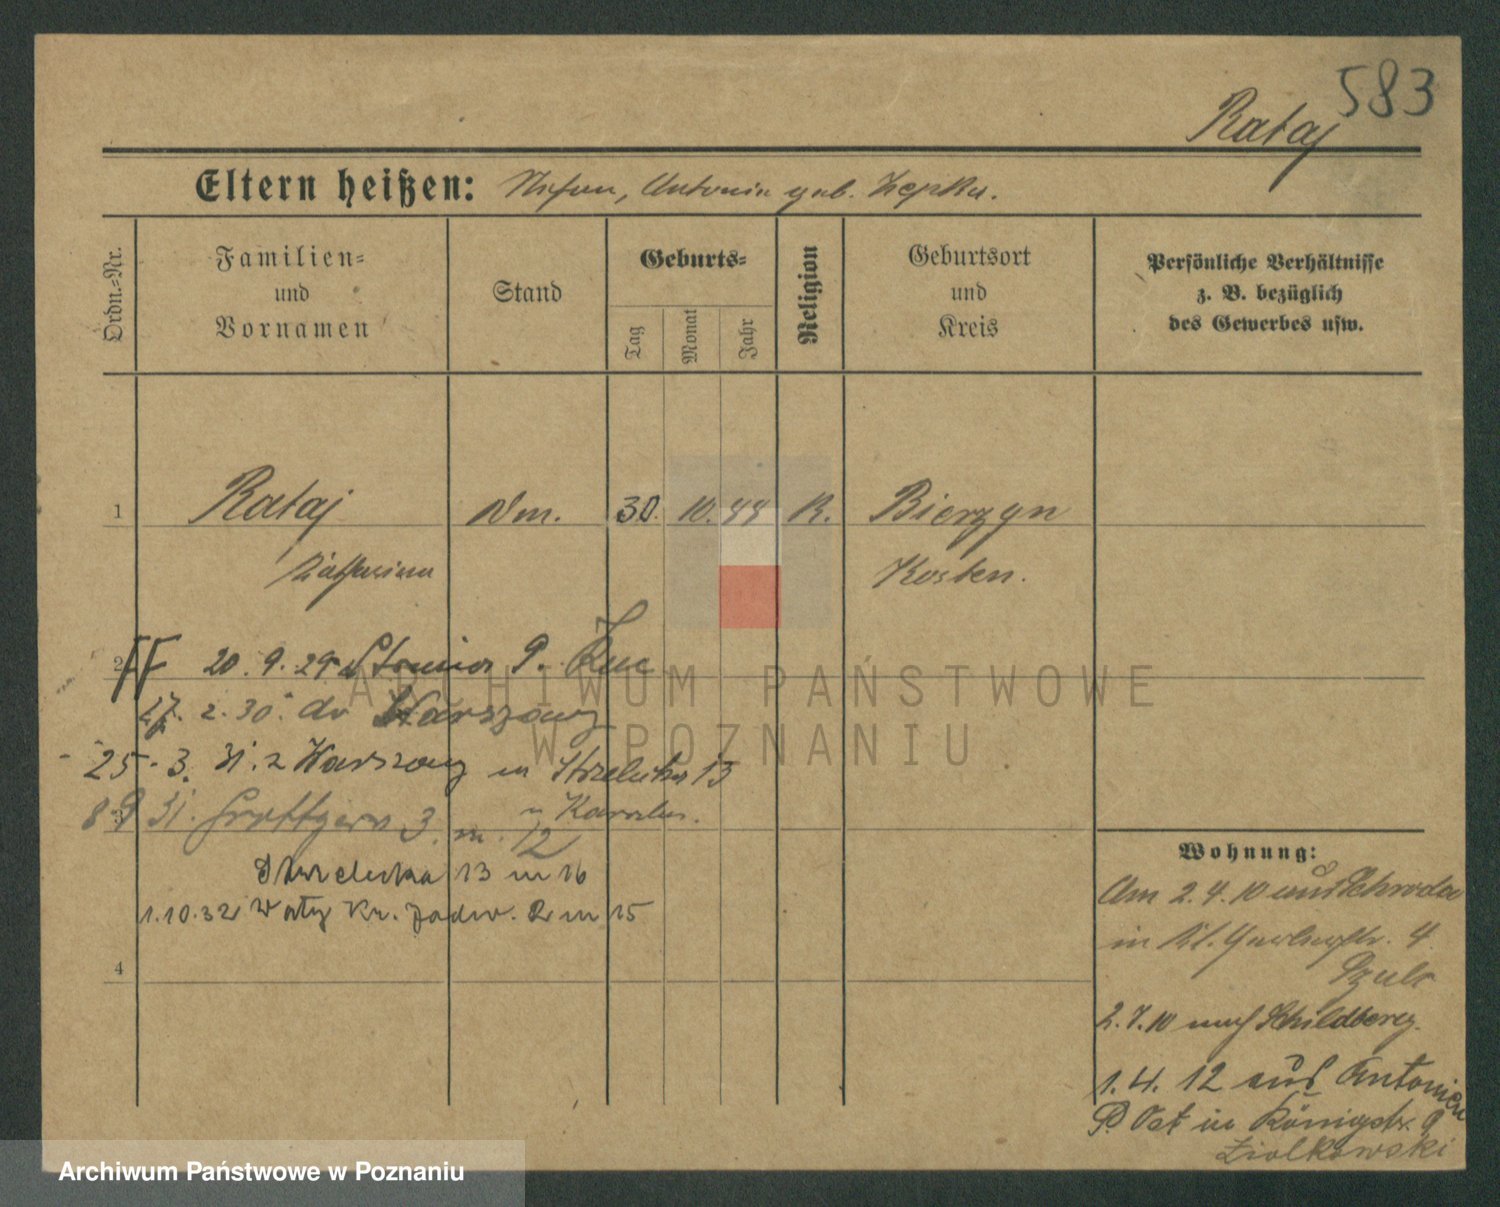 583
Rataj
Eltern heißen: Antonie geb.
Ordn.-Nr.
Familien=
und
Vornamen
Stand
Geburts=
Tag
Monat
Jahr
Religion
Geburtsort
und
Kreis
Persönliche Verhältnisse
z. B. bezüglich
des Gewerbes usw.
1 Rataj Dm. 30. 10. 44 R. Bierzyn
Katharina Kosten.
2 20. 9. 29
27. 2. 30. do Warszawy
25. 3. 31. z Warszawy m Strzelecka 13
3 8 9 31. Grottgera 3. m. 12
Strzelecka 13 m 16
1.10.32 Kr. Jadw. 2 m 15
4
Wohnung:
Am 2. 4. 10 aus Schroda
in Kl. Gerberstr. 4
2. 7. 10 nach Schildberg.
1. 4. 12 aus Antonien
P. Ost in Königstr. 9
Ziolkowski
ARCHIWUM PAŃSTWOWE
W POZNANIU
Archiwum Państwowe w Poznaniu